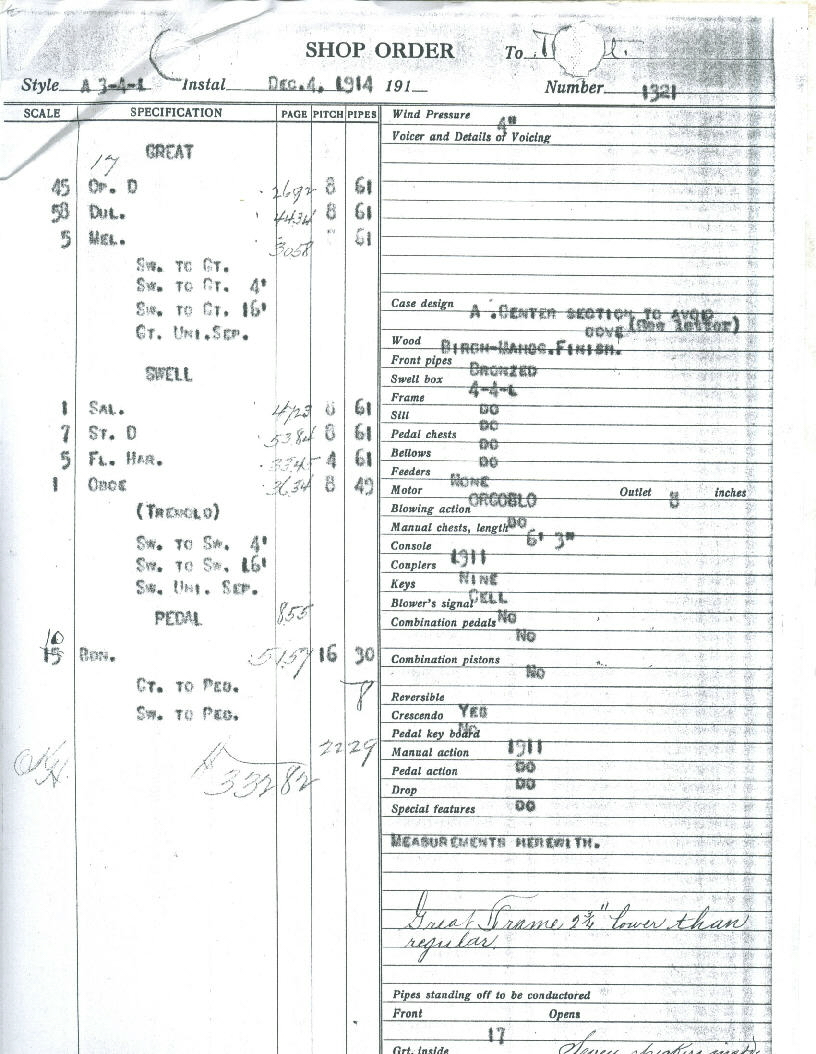 SHOP ORDER To
Style A 3-4-L Instal Dec. 4, 1914 191 Number 1321
SCALE SPECIFICATION PAGE PITCH PIPES
GREAT
17
45 Op. D 2692 8 61
58 Dul. 4434 8 61
5 Mel. 3058 61
Sw. to Gt.
Sw. to Gt. 4'
Sw. to Gt. 16'
Gt. Uni. Sep.
SWELL
1 Sal. 4723 8 61
7 St. D 5384 8 61
5 Fl. Har. 3345 4 61
1 Oboe 3634 8 49
(Tremolo)
Sw. to Sw. 4'
Sw. to Sw. 16'
Sw. Uni. Sep.
PEDAL 855
10
15 Bdn. 5157 16 30
Gt. to Ped. 8
Sw. to Ped.
2229
33282
Wind Pressure 4"
Voicer and Details of Voicing
Case design A .Center section to avoid
cove (See letter)
Wood Birch-Mahog. Finish.
Front pipes Bronzed
Swell box 4-4-L
Frame do
Sill do
Pedal chests do
Bellows do
Feeders None
Motor Orgoblo Outlet 8 inches
Blowing action do
Manual chests, length 6' 3"
Console 1911
Couplers Nine
Keys Cell
Blower's signal No
Combination pedals No
Combination pistons No
Reversible
Crescendo Yes
Pedal key board No
Manual action 1911
Pedal action do
Drop do
Special features do
Measurements herewith.
Great Frame 2¾" lower than
regular.
Pipes standing off to be conductored
Front Opens
17
Grt. inside